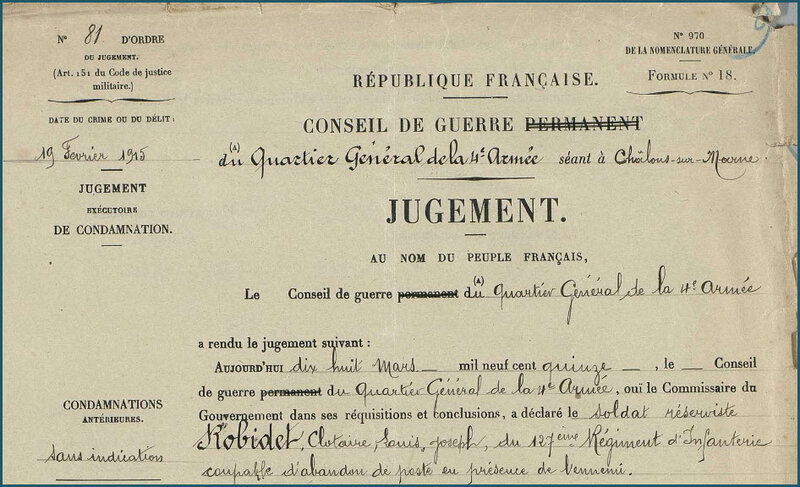 N° 81 D'ORDRE
DU JUGEMENT.
(Art. 151 du Code de justice
militaire.)
DATE DU CRIME OU DU DÉLIT:
19 Février 1915
JUGEMENT
EXÉCUTOIRE
DE CONDAMNATION.
CONDAMNATIONS
ANTÉRIEURES.
Sans indication
N° 970
DE LA NOMENCLATURE GÉNÉRALE.
FORMULE N° 18.
RÉPUBLIQUE FRANÇAISE.
CONSEIL DE GUERRE PERMANENT
(A) du Quartier Général de la 4e Armée séant à Châlons-sur-Marne.
JUGEMENT.
AU NOM DU PEUPLE FRANÇAIS,
Le Conseil de guerre permanent (A) du Quartier Général de la 4e Armée
a rendu le jugement suivant :
AUJOURD'HUI dix huit Mars mil neuf cent quinze, le Conseil
de guerre permanent du Quartier Général de la 4e Armée, ouï le Commissaire du
Gouvernement dans ses réquisitions et conclusions, a déclaré le soldat réserviste
Robidet, Clotaire, Louis, Joseph, du 127ème Régiment d'Infanterie
coupable d'abandon de poste en présence de l'ennemi.